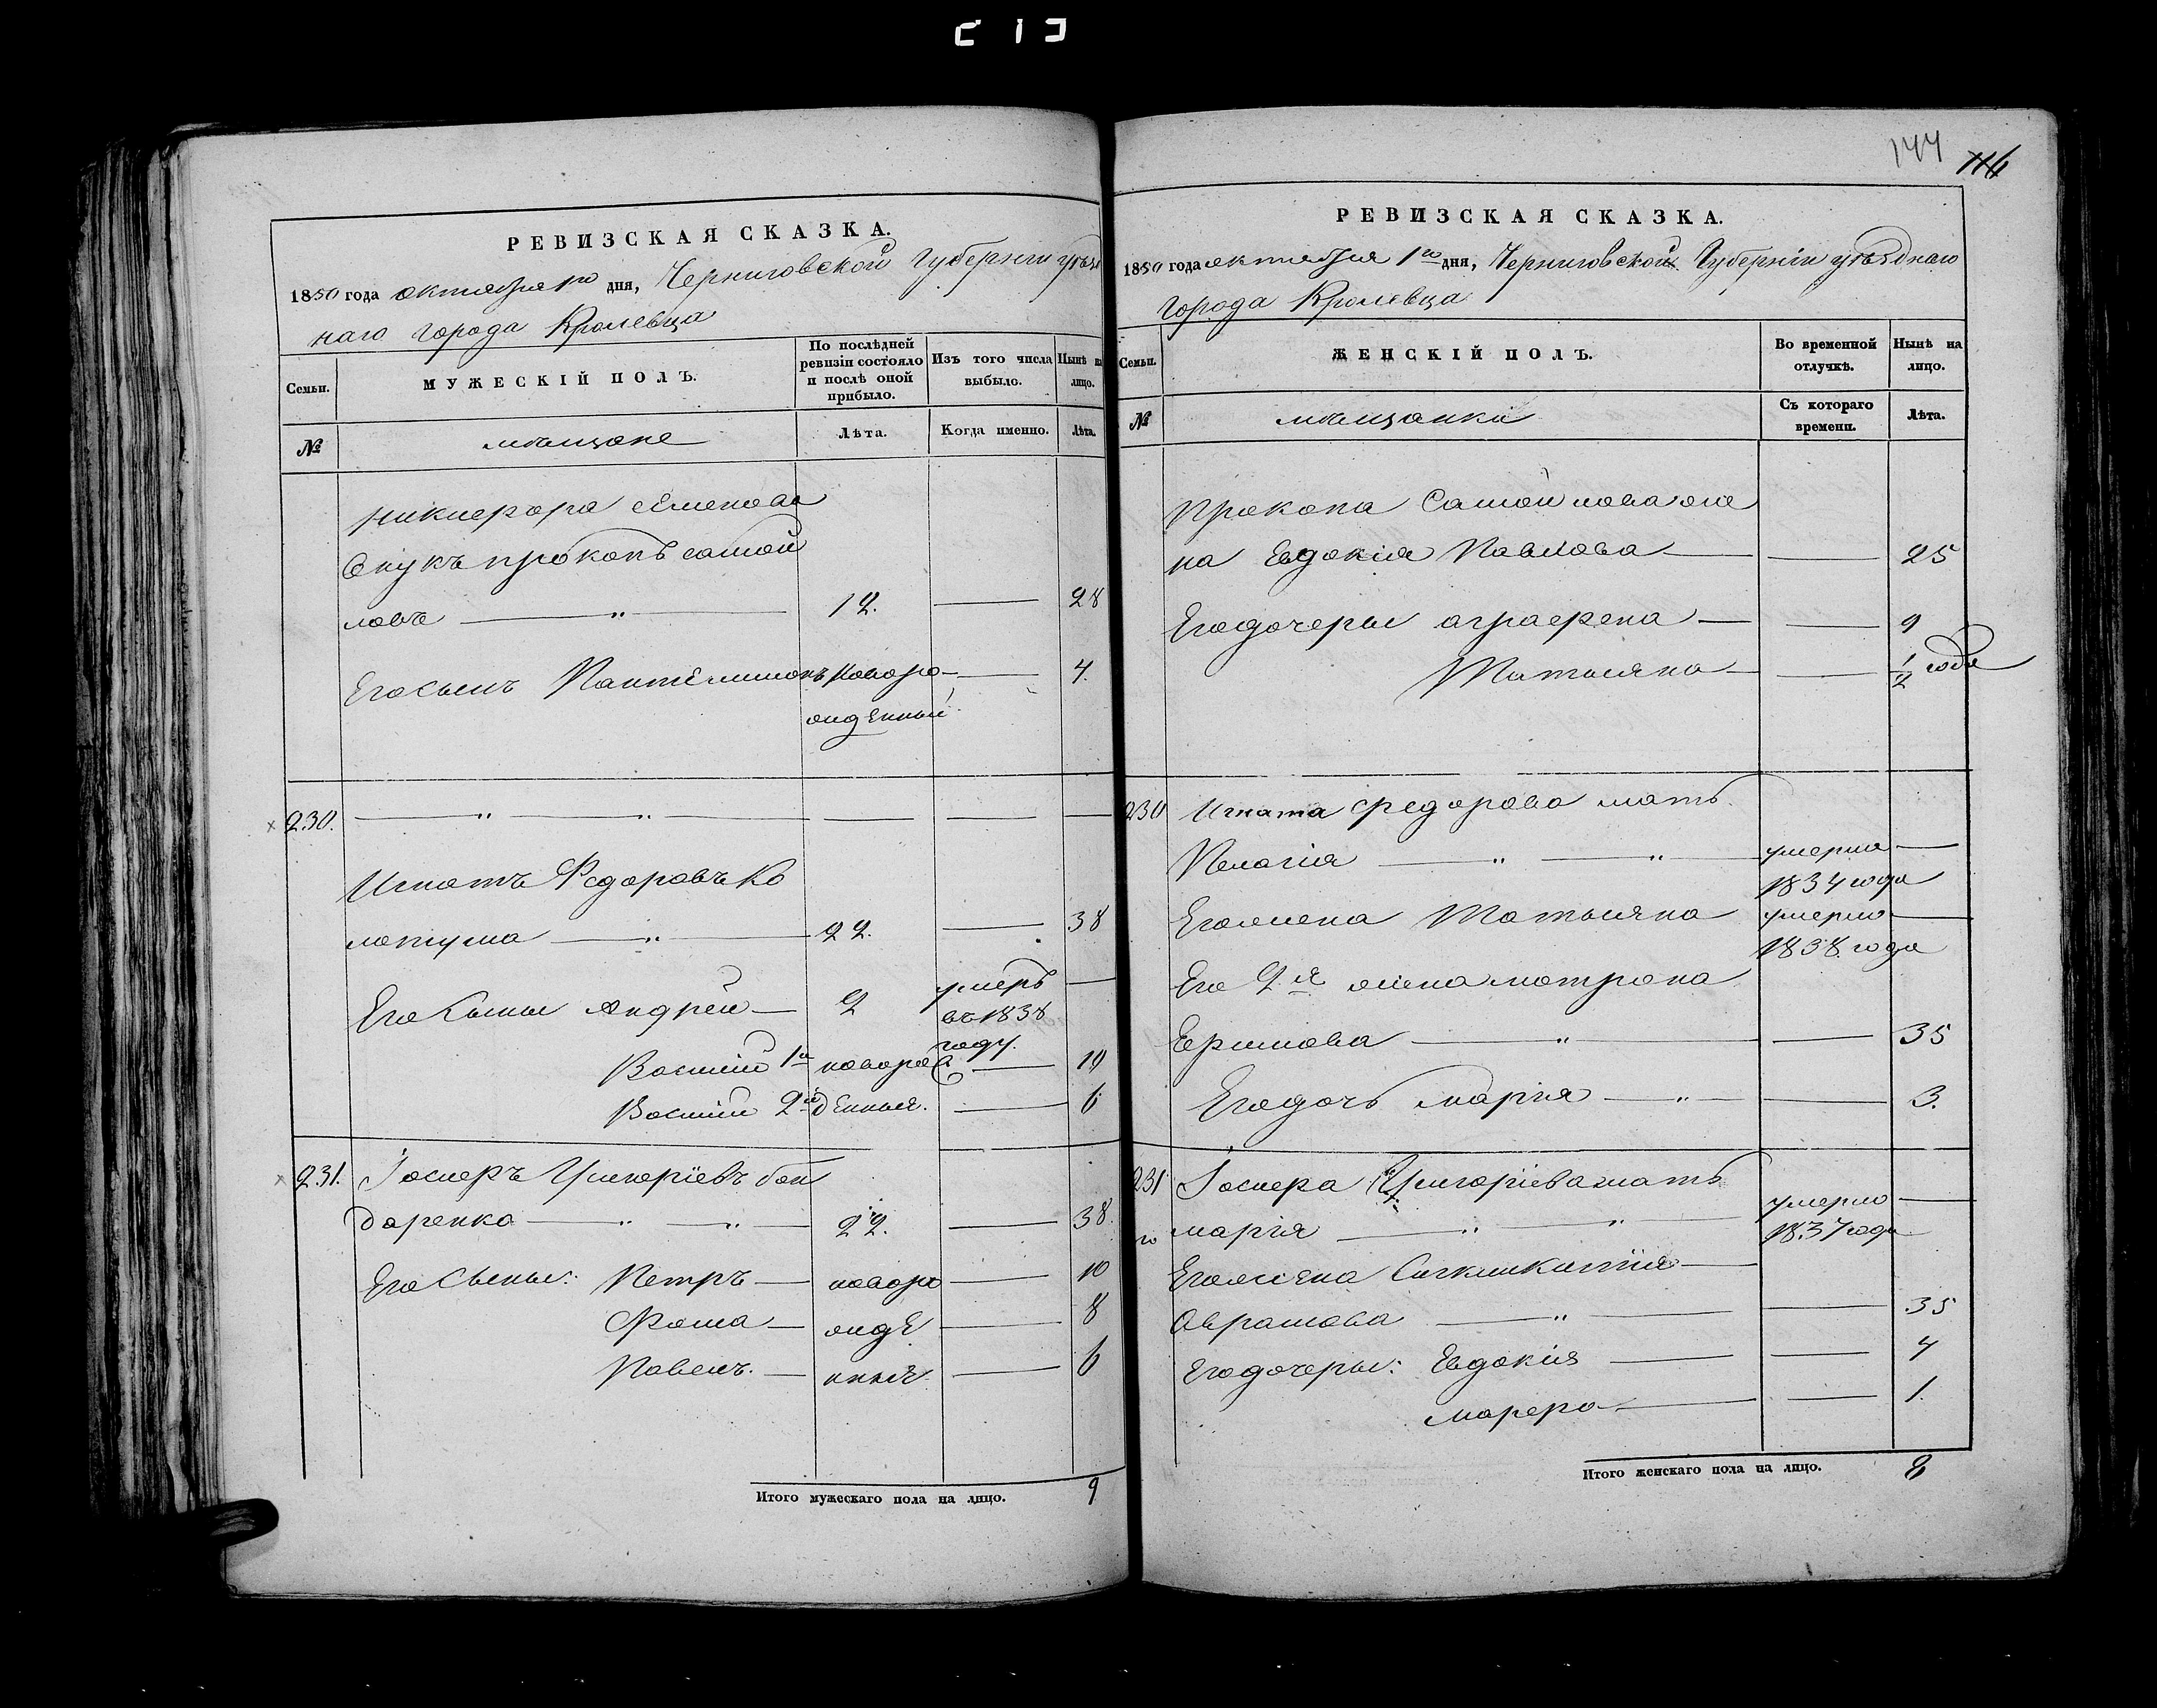 144 116
РЕВИЗСКАЯ СКАЗКА.
1850 года октября 1го дня, Черниговской Губерніи уѣзд
наго города Кролевца
Семьи.
МУЖЕСКІЙ ПОЛЪ.
По послѣдней ревизіи состояло и послѣ оной прибыло.
Изъ того числа выбыло.
Нынѣ на лицо.
№
мѣщане
Лѣта.
Когда именно.
Лѣта.
Никифора Семенова
внукъ прокопъ самой
ловъ — " — 12. — 28
Его сынъ Пантелимонъ новоро — 4.
жденный
230. — " — " — — — —
Игнатъ Федоровъ Ко
лотуша — " — 22. — 38
Его Сыны Андрей — 2 умеръ —
въ 1838
году.
Василій 1й новоро — 10
Василій 2й жденныя. — 6
231. Іосифъ Григоріевъ бон
даренко — " — " — 22. — 38.
Его Сыны: Петръ — новоро — 10
Фома — жде — 8
Павелъ. — нныя — 6
Итого мужескаго пола на лицо. 9
РЕВИЗСКАЯ СКАЗКА.
1850 года октября 1го дня, Черниговской Губерніи уѣзднаго
города Кролевца
Семьи.
ЖЕНСКІЙ ПОЛЪ.
Во временной отлучкѣ.
Нынѣ на лицо.
№
мѣщанки
Съ котораго времени.
Лѣта.
Прокопа Самойлова же
на Евдокія Павлова — — 25
Его дочеры аграфена — — 9
Татьяна — — 1/2 года
230 Игната федорова мать
Пелагія — " — " — умерла —
1834 года
Его жена Татьяна умерла —
1838 года
Его 2я жена мотрона
Ефимова — " — — 35
Его дочь марія — " — — 3.
231 Іосифа Григоріева мать
марія — " — " — умерла —
1837 года
Его жена —
Аврамова — " — — 35
Его дочеры: Евдокія — — 4
марфа — — 1.
Итого женскаго пола на лицо. 8